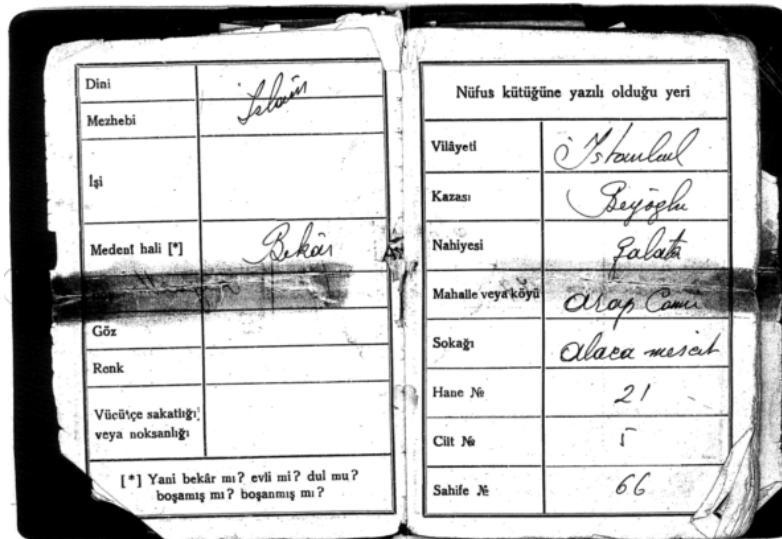 Dini
İslâm
Mezhebi
İşi
Medenî hali [*] Bekâr
Göz
Renk
Vücütçe sakatlığı
veya noksanlığı
[*] Yani bekâr mı? evli mi? dul mu?
boşamış mı? boşanmış mı?
Nüfus kütüğüne yazılı olduğu yeri
Vilâyeti İstanbul
Kazası Beyoğlu
Nahiyesi Galata
Mahalle veya köyü Arap Camii
Sokağı Alaca mescit
Hane № 21
Cilt № 5
Sahife № 66